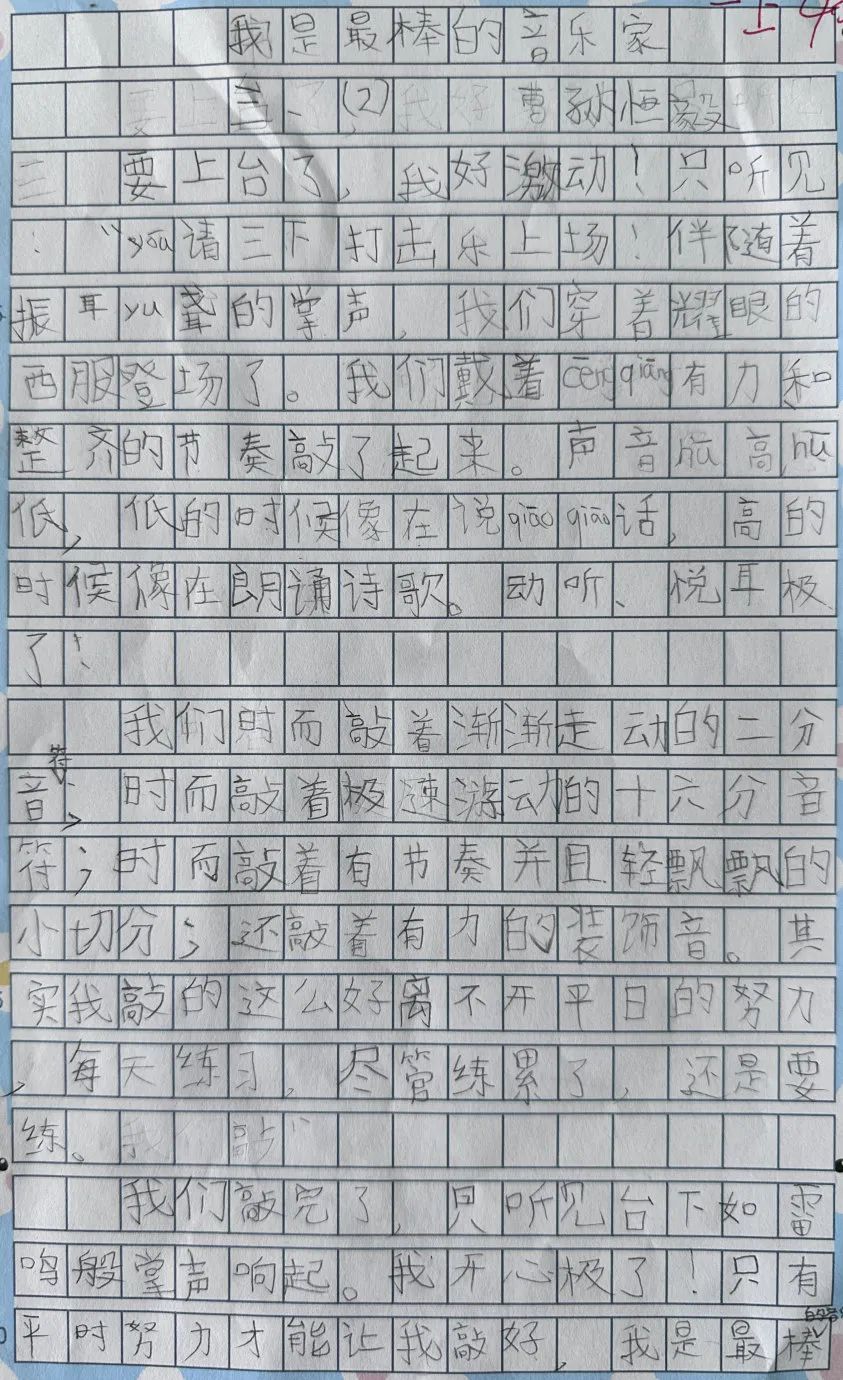 我是最棒的音乐家
(2)曹孙恒毅
要上台了，我好激动！只听见
：“yǒu请三下打击乐上场！伴随着
振耳yu聋的掌声，我们穿着耀眼的
西服登场了。我们戴着cēngqiāng有力和
整齐的节奏敲了起来。声音hū高hū
低，低的时候像在说qiāoqiāo话，高的
时候像在朗诵诗歌。动听、悦耳极
了！
我们时而敲着渐渐走动的二分
音符；时而敲着极速游动的十六分音
符；时而敲着有节奏并且轻飘飘的
小切分；还敲着有力的装饰音。其
实我敲的这么好离不开平日的努力
，每天练习，尽管练累了，还是要
练。
我们敲完了，只听见台下如雷
鸣般掌声响起。我开心极了！只有
平时努力才能让我敲好，我是最棒